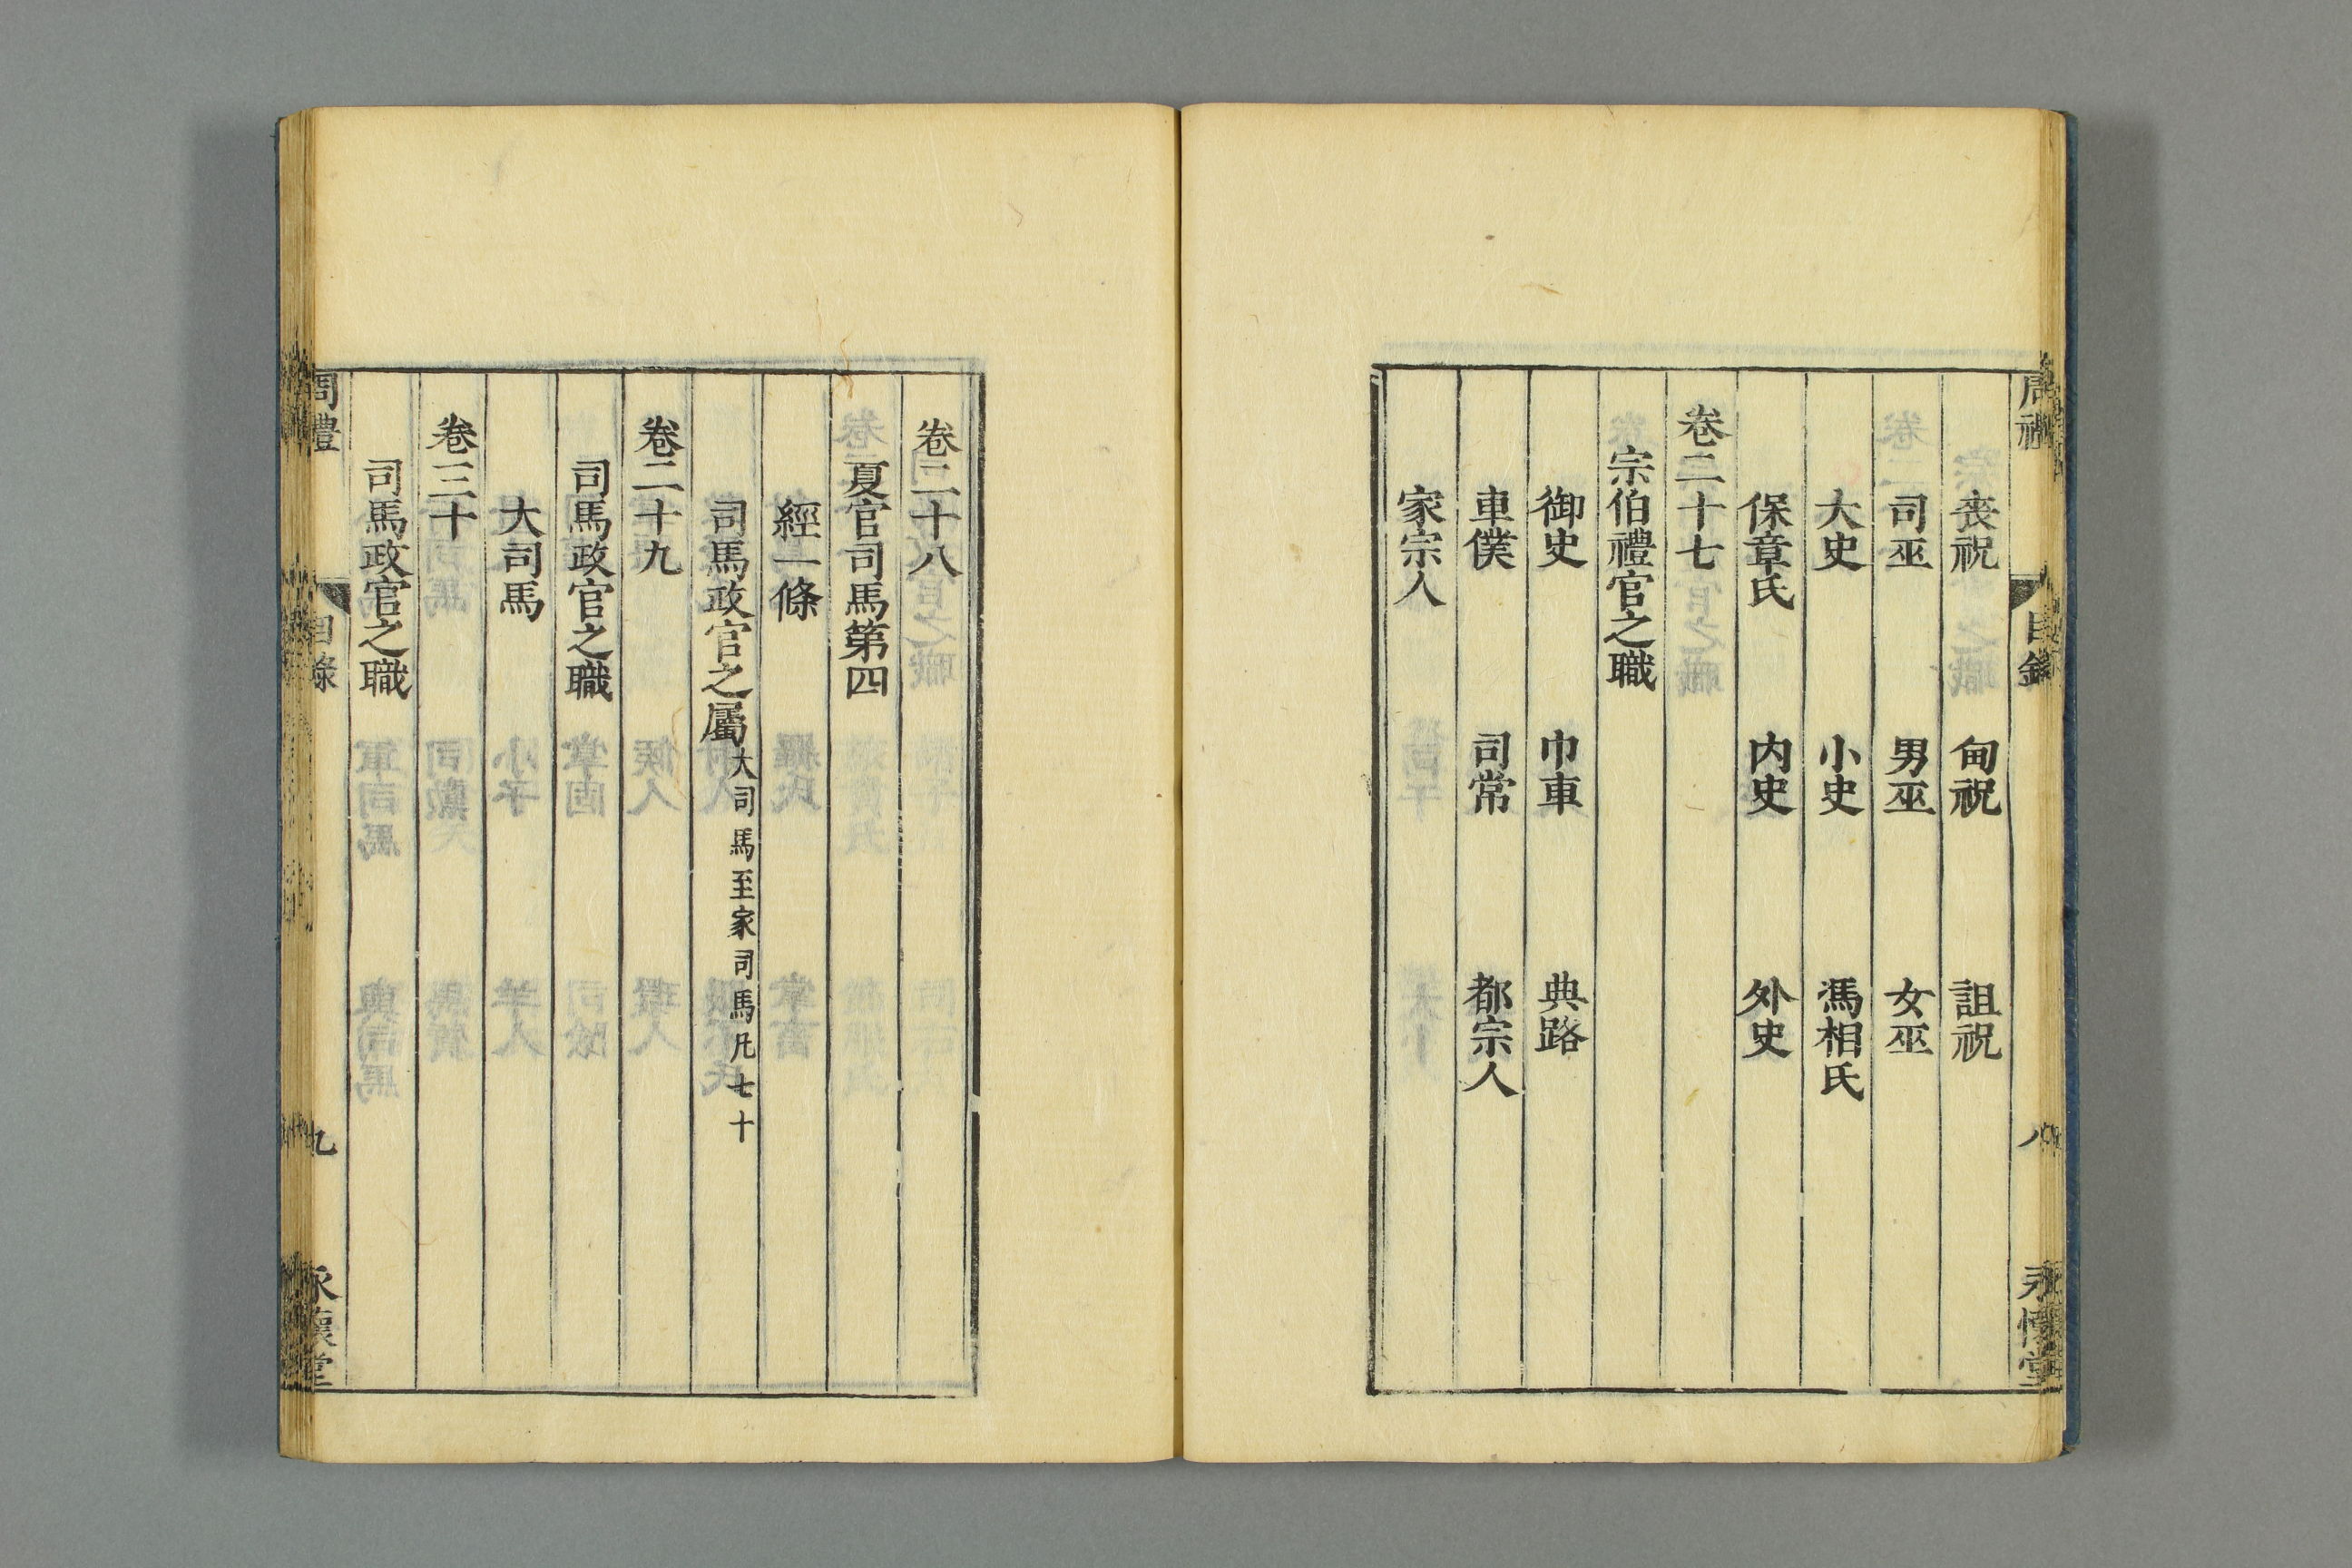 周禮 目錄 八 永懷堂
喪祝 甸祝 詛祝
司巫 男巫 女巫
大史 小史 馮相氏
保章氏 内史 外史
卷二十七
宗伯禮官之職
御史 巾車 典路
車僕 司常 都宗人
家宗人
卷二十八
夏官司馬第四
經一條
司馬政官之屬大司馬至家司馬凡七十
卷二十九
司馬政官之職
大司馬
卷三十
司馬政官之職
周禮 目錄 九 永懷堂